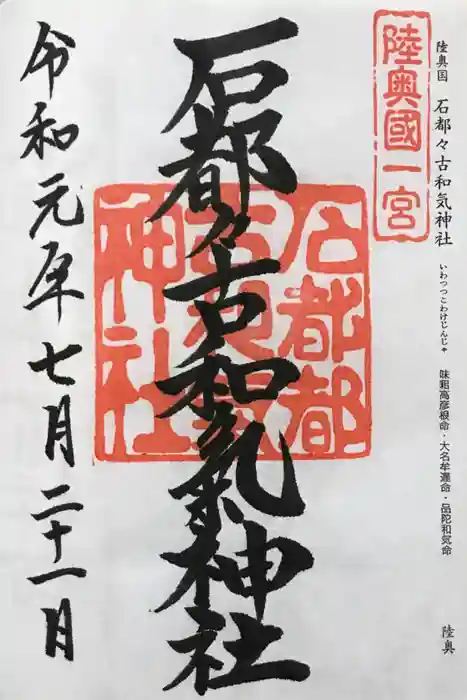 陸奥国 石都々古和気神社 いわつつこわけじんじゃ 味耜高彦根命・大名牟遅命・品陀和気命 陸奥
陸奥國一宮
石都々古和気神社
石都都
古和氣
神社
令和元年七月二十一日